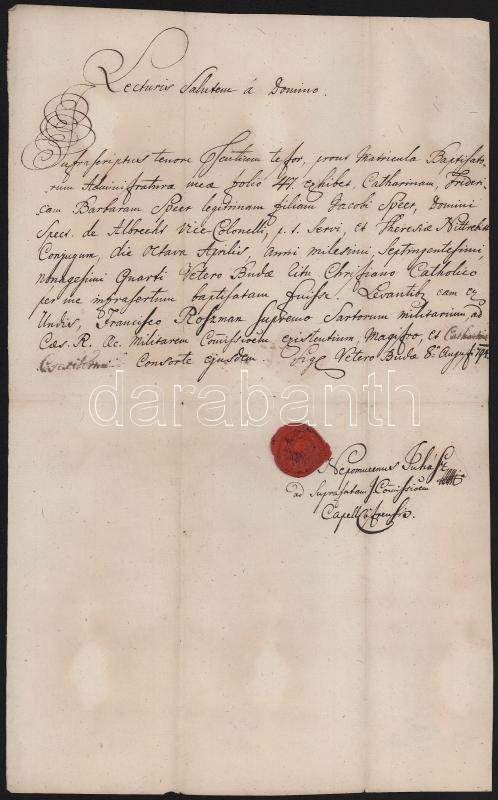 Lecturis Salutem á Domino.
Infrascriptus tenore Scutium testor, prout Matricula Baptisato-
rum Administrature meæ folio 47. exhibet, Catharinam, Frideri-
cam Barbaram Speer legitimam filiam Jacobi Speer, Domini
Spect. de Albrecht Vice Colonelli, p. t. Servi, et Theresiæ
Conjugum, die Octava Aprilis, anni milesimi, Septingentesimi,
nonagesimi Quarti Vetero Budæ ritu Christiano Catholico
per me infrasertum baptisatam fuisse. Levantibus eam ex
Undis, Francisco Roszman supremo Sartorum militarium ad
Cæs. R. Ac. Militarem Comissioem existentium, Magistro, et Catharina
consorte ejusdem. Sigl Vetero Budæ 8a Augusti
darabanth
Nepomucenus Juhász
ad suprafatam Comissioem
Capell Castrensis.